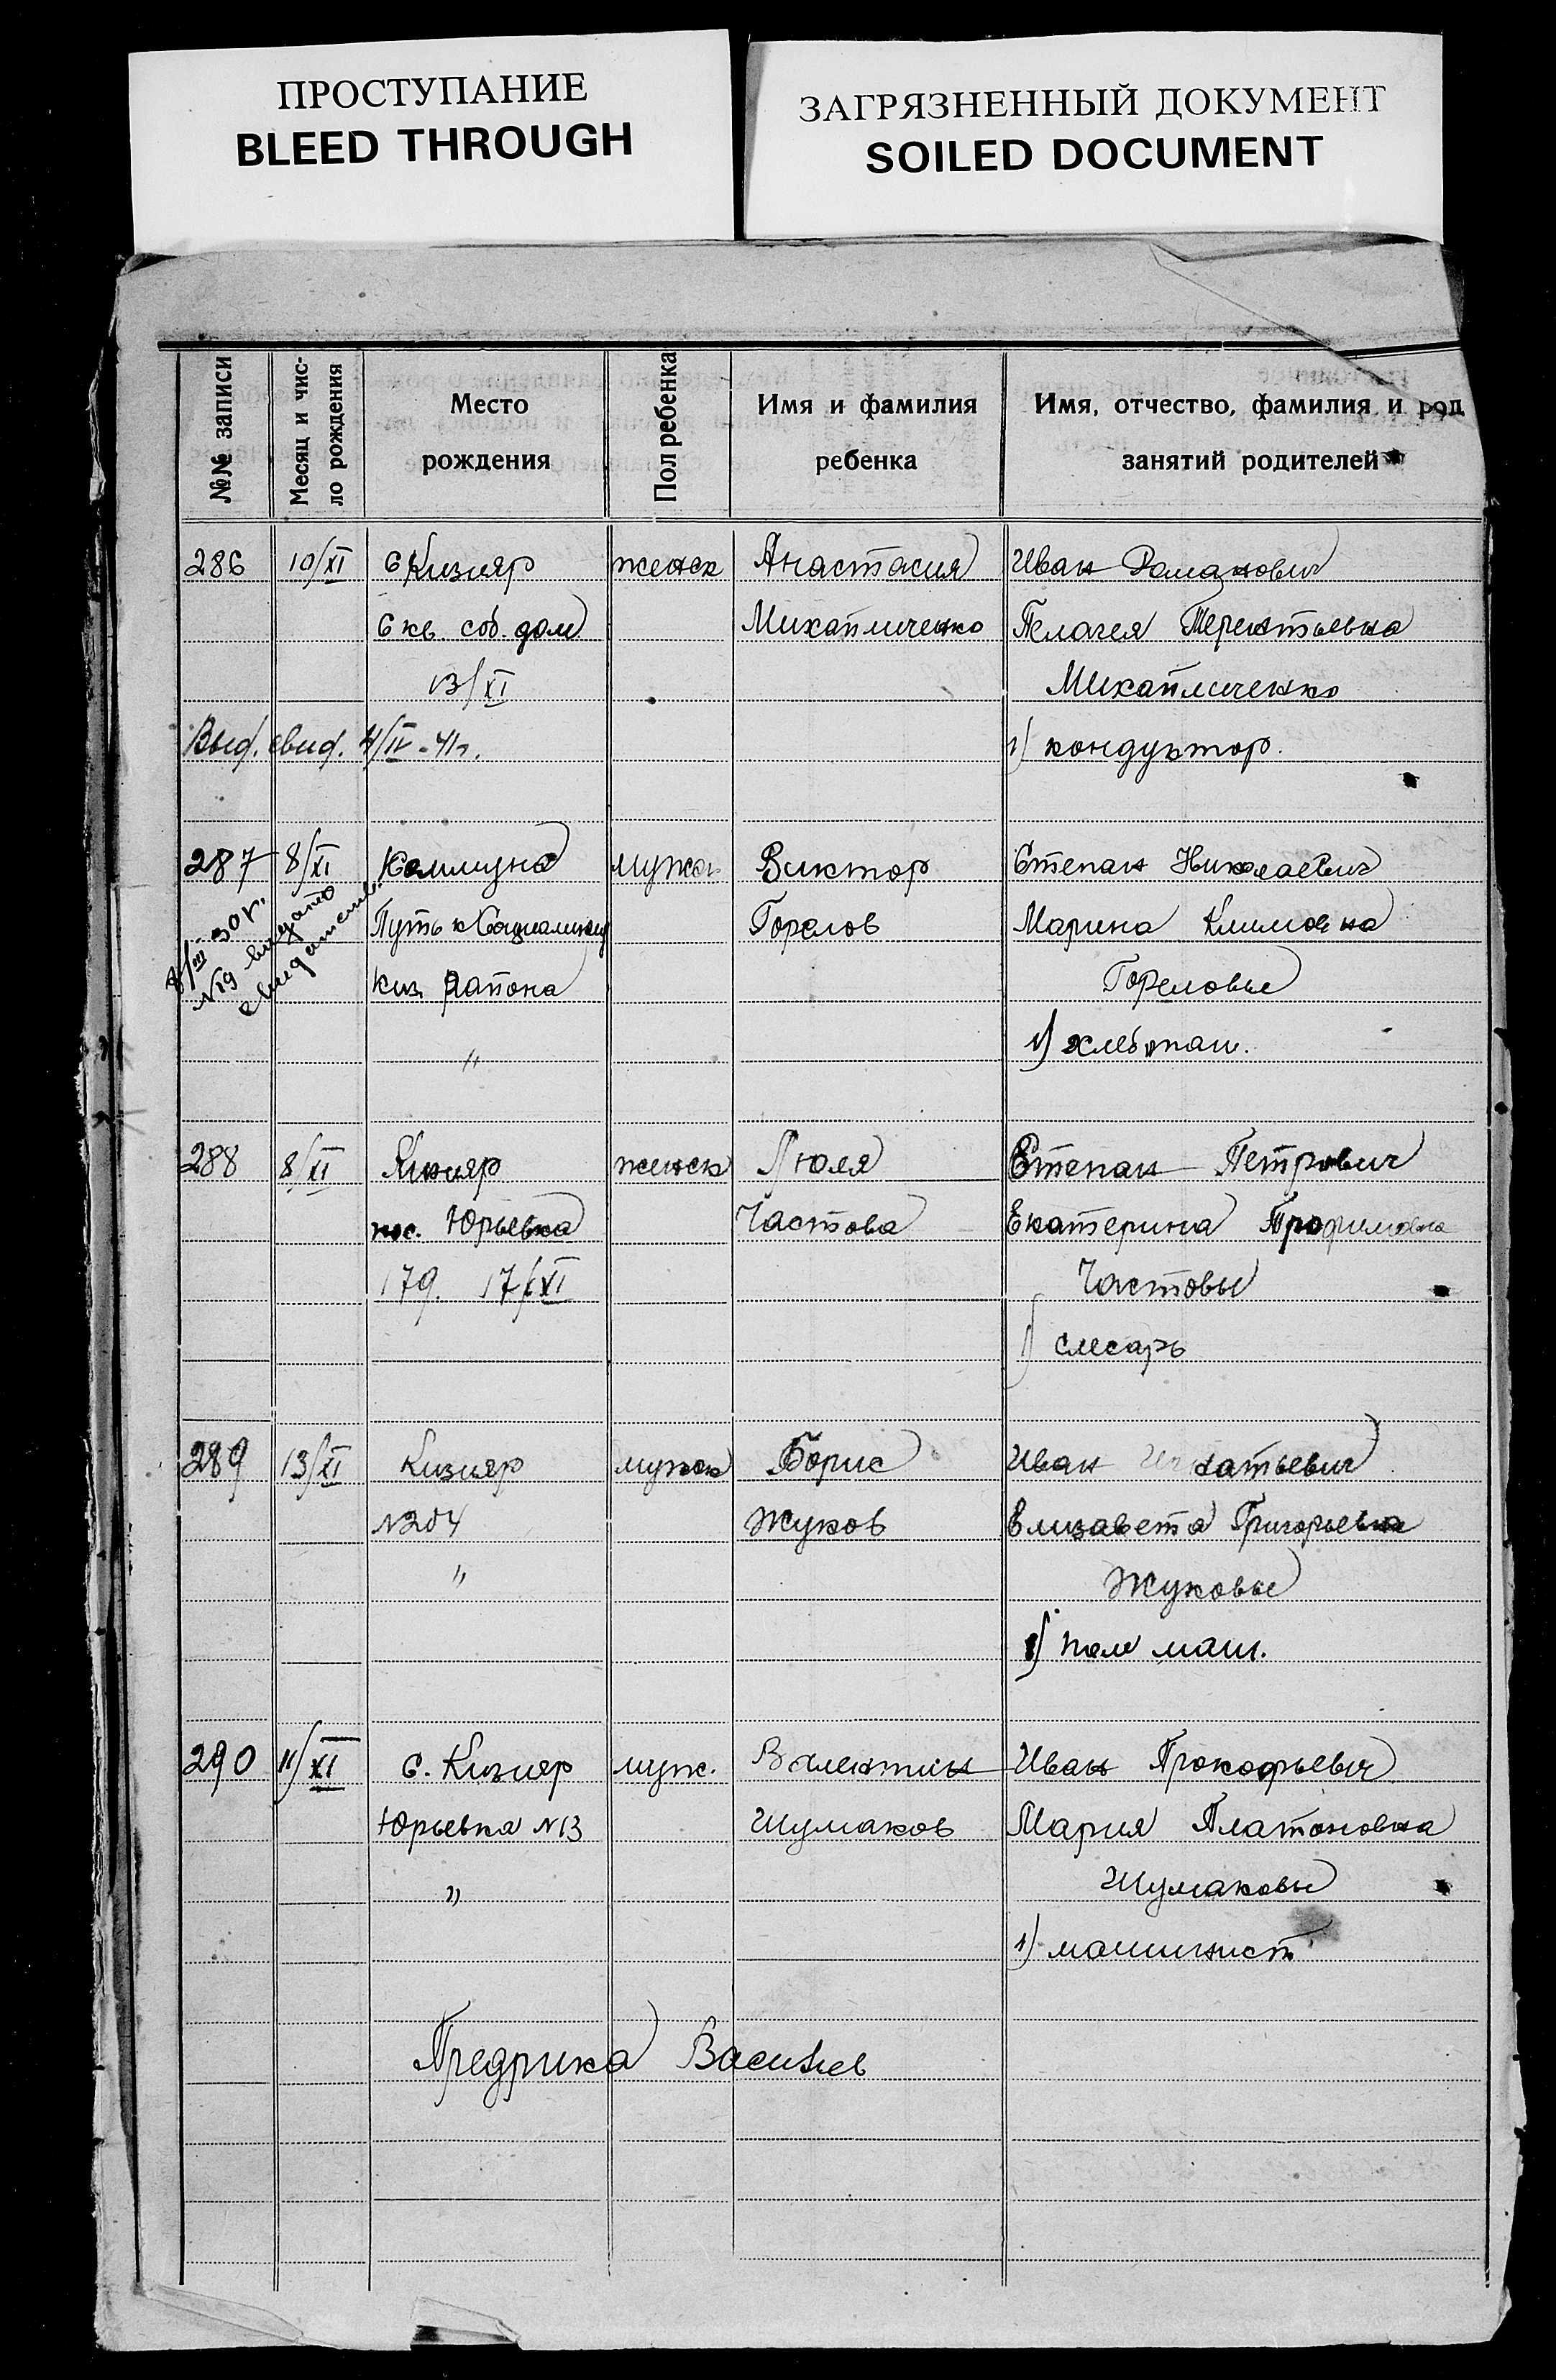 ПРОСТУПАНИЕ
BLEED THROUGH
ЗАГРЯЗНЕННЫЙ ДОКУМЕНТ
SOILED DOCUMENT
№№ записи
Месяц и чис-
ло рождения
Место
рождения
Пол ребенка
Имя и фамилия
ребенка
Имя, отчество, фамилия и род
занятий родителей
286 10/XI с Кизияр женск Анастасия Иван Романович
6 кв. соб. дом Михайличенко Пелагея Терентьевна
13/XI Михайличенко
Выд. свид. 4/IV-41г. 1) кондуктор.
287 8/XI Коммуна мужск Виктор Степан Николаевич
Путь к Социализму Горелов Марина Климовна
Киз района Гореловы
8/III-30г.
№19 выдано
свидетельс.
" 1) хлебопаш.
288 8/XI Кизияр женск Люля Степан Петрович
пос. Юрьевка Частова Екатерина Трофимовна
179. 17/XI Частовы
1) слесарь
289 13/XI Кизияр мужск Борис Иван Игнатьевич
№204 Жуков Елизавета Григорьевна
" Жуковы
1) пом маш.
290 11/XI с. Кизияр муж. Валентин Иван Прокофьевич
Юрьевка №13 Шумаков Мария Платоновна
" Шумаковы
1) машинист